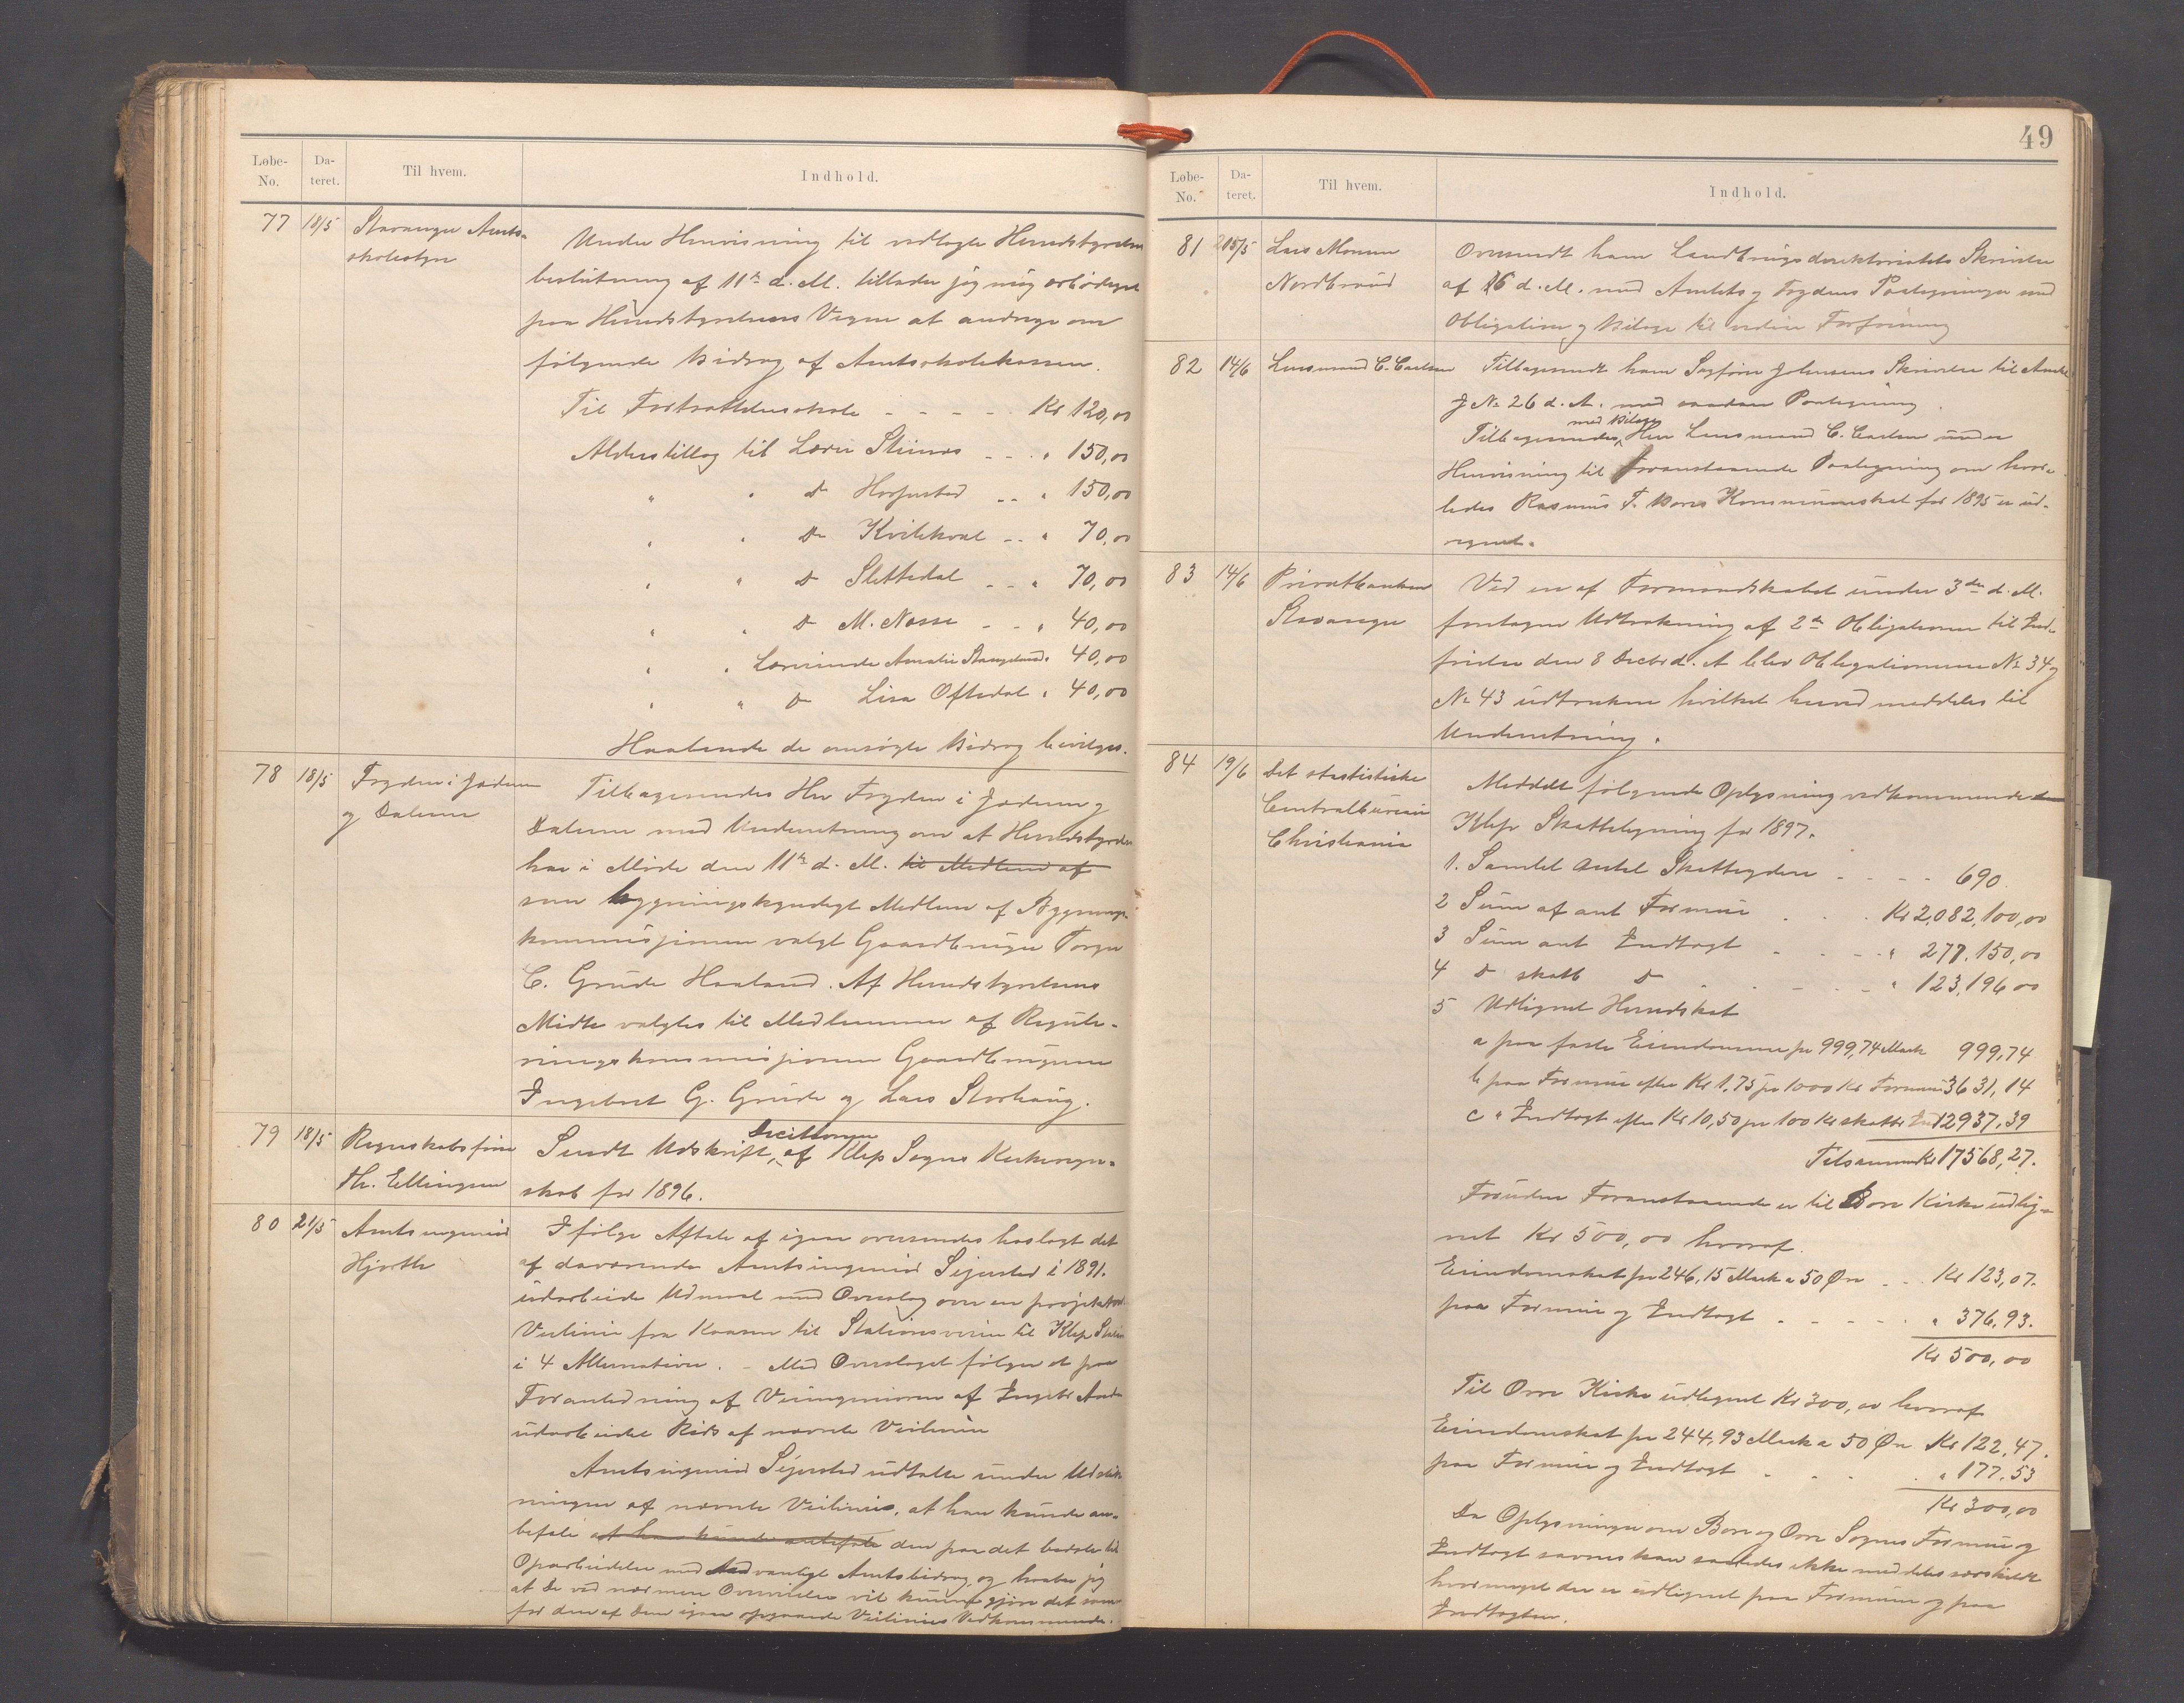 Løbe-No. Da-teret. Til hvem. Indhold.
77 18/5 Stavanger Amts-
skolestyre
Under Henvisning til vedlagte Herredsstyrelses
beslutning af 11te d. M. tillader jeg mig ærbødigst
paa Herredsstyrelsens Vegne at andrage om
følgende Bidrag af Amtsskolekassen.
Til Fortsættelsesskole - - - - Kr 120,00
Alderstillæg til Lærer Stensos - - - " 150,00
" " Do Horpestad - - " 150,00
" " Do Kvilekval - - " 70,00
" " Do Slettedal - - " 70,00
" " Do M. Nesse - - " 40,00
" " Lærerinde Amalie Stangeland " 40,00
" " Do Lisa Oftedal " 40,00
Haabende de omsøgte Bidrag bevilges.
78 18/5 Fogden i Jæderen
og Dalerne
Tilbagesendes Hr Fogden i Jæderen og
Dalerne med Underretning om at Herredsstyrelsen
har i Møde den 11te d. M. til Medlem af
som bygningskyndigt Medlem af Bygnings-
kommissionen valgt Gaardbruger Torger
C. Grude Haaland. Af Herredsstyrelsens
Midte valgtes til Medlemmer af Regule-
ringskommissionen Gaardbrugerne
Ingebret G. Grude og Lars Storhaug.
79 18/5 Regnskabsfører
Th. Ellingsen
Decisionen
Sendt Udskrift, af Klep Sogns Kirkeregn-
skab for 1896.
80 21/5 Amtsingeniør
Hjorth
Ifølge Aftale af igaar oversendes hoslagt det
af daværende Amtsingeniør Sejersted i 1891.
udarbeide Udmaal med Overslag over en projekteret
Veilinie fra Kaasen til Stationsveien til Klep Station
i 4 Alternativer. - Med Overslaget følger et paa
Foranledning af Veiingeniøren af Ingebr
udarbeidet Rids af nævnte Veilinie
Amtsingeniør Sejersted udtalte under Udstik-
ningen af nævnte Veilinie, at han kunde an-
befale at han kunde anbefale den paa det bedste til
Oparbeidelse med sedvanligt Amtsbidrag, og haaber jeg
at De ved nærmere Overveielse vil kunne gjøre det samme
for den af Dem igaar opgaaede Veilinies Vedkommende.
49
Løbe-No. Da-teret. Til hvem. Indhold.
81 25/5 Lars Monsen
Nordbraud
Oversendt ham Landbrugsdirektoriatets Skrivelse
af 16 d. M. med Amtets og Fogdens Paategninger med
Obligation og Bilage til videre Forføining
82 14/6 Lensmand C. Carlsen
Tilbagesendt ham Sagfører Johnsens Skrivelse til Amtet
J No 26 d. A. med saadan Paategning.
med Bilage
Tilbagesendes Herr Lensmand C. Carlsen under
Henvisning til foranstaaende Paategning om hvor-
ledes Rasmus T. Bores Kommuneskat for 1895 er ud-
regnet.
83 14/6 Privatbanken
Stavanger
Ved en af Formandskabet under 3die d. M.
foretagen Udtrækning af 2de Obligationer til Ind-
frielse den 8 Decbr d. A blev Obligationerne No 34 og
No 43 udtrukne hvilket herved meddeles til
Underretning.
84 19/6 Det statistiske
Centralbureau
Christiania
Meddelt følgende Oplysning vedkommende
Klep Skatteligning for 1897.
1. Samlet Antal Skatteydere - - - - 690.
2 Sum af ant Formue - - - Kr 2,082,100,00
3 Sum ant Indtægt - - - - " 277.150,00
4 Do skatb Do - - - - " 123,196 00
5 Udlignet Herredskat
a paa faste Eiendomme pr 999,74 Mark 999,74
b paa Formue efter Kr 1,75 pr 1000 Kr Formue 3631,14
c " Indtægt efter Kr 10,50 pr 100 Kr skattb Ind 12937,39
Tilsammen Kr 17568,27.
Foruden Foranstaaende er til Bore Kirke udlig-
net Kr 500,00 hvoraf.
Eiendomskat pr 246,15 Mark a 50 Øre - - Kr 123,07.
paa Formue og Indtægt - - - - - " 376,93.
Kr 500,00
Til Orre Kirke udlignet Kr 300,00 hvoraf
Eiendomskat pr 244,93 Mark a 50 Øre Kr 122,47.
paa Formue og Indtægt - - - - " 177.53
Kr 300,00
Da Oplysninger om Bore og Orre Sognes Formue og
Indtægt savnes kan saaledes ikke meddeles særskildt
hvormeget der er udlignet paa Formue og paa
Indtægten.